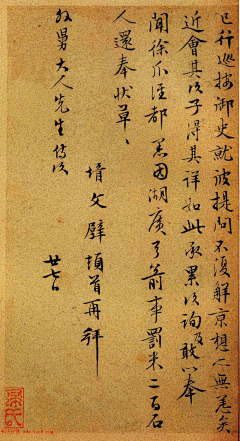 已行巡按御史就彼提问不復解京想亦無恙矣
近會其次子得其詳如此承累次詢及敢以奉
聞徐爪涯都憲因湖廣弓箭事罰米二百石
人還奉状草〻
壻文璧頓首再拜
外舅大人先生侍次
廿七日